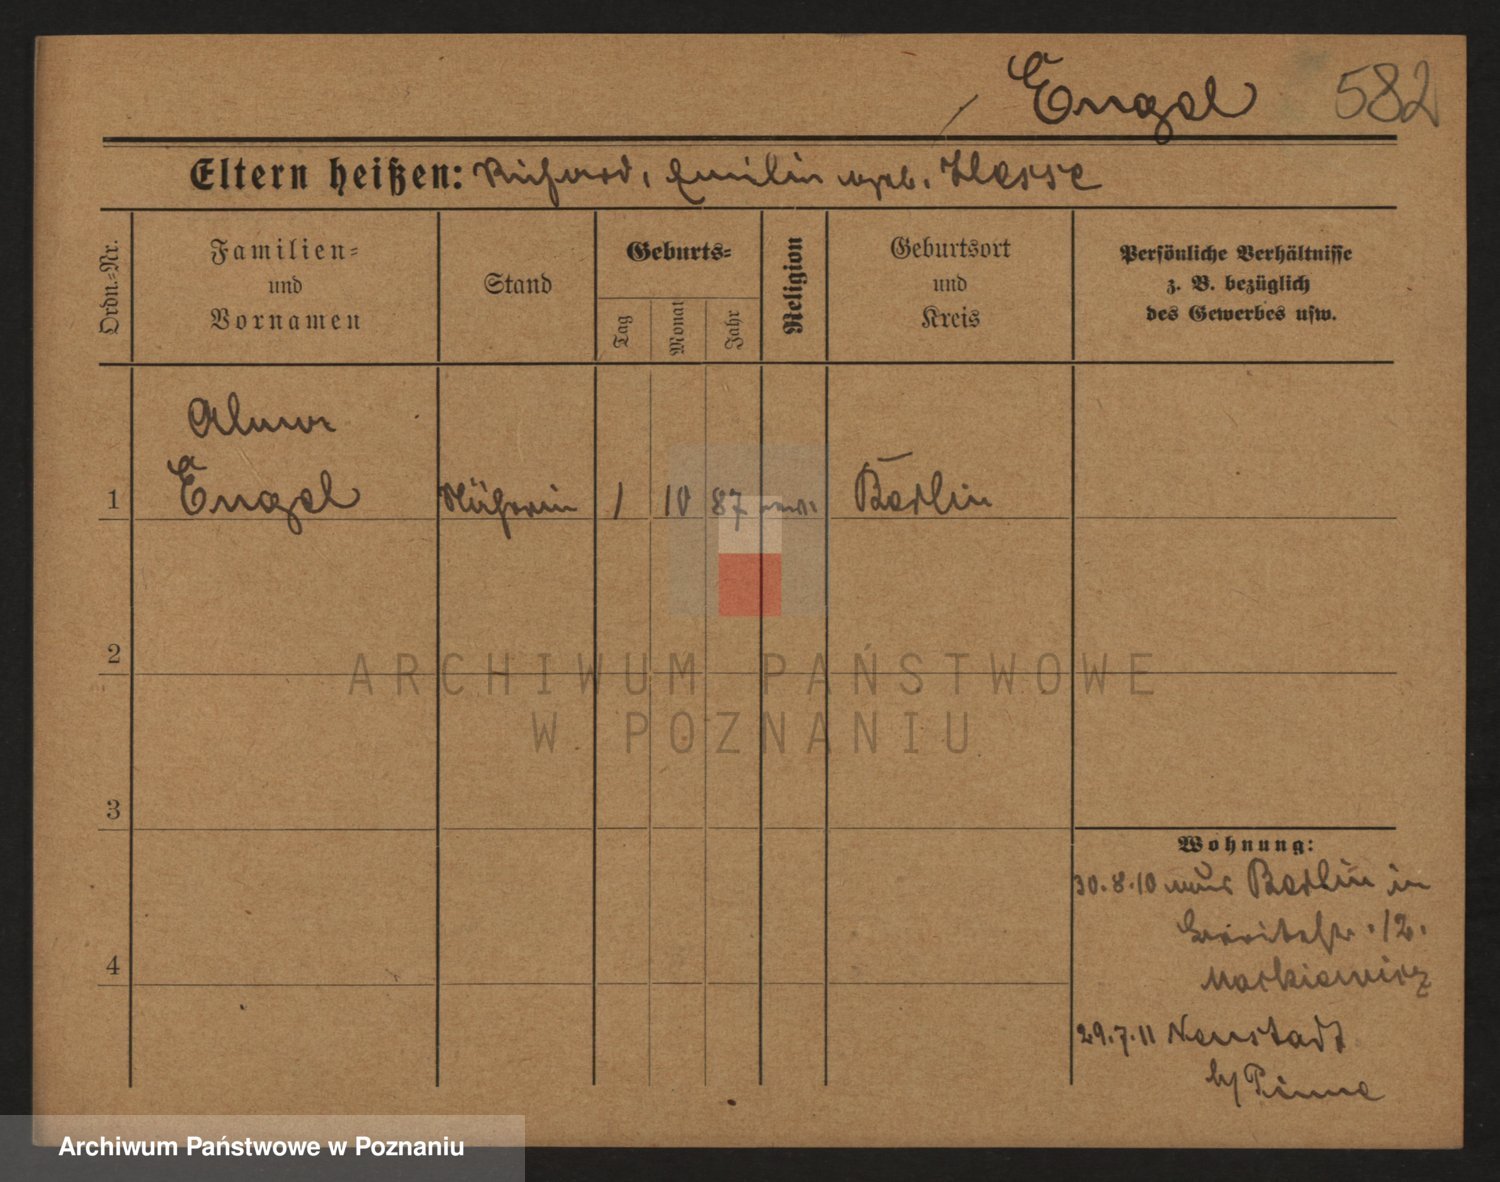 Engel 582
Eltern heißen: Richard, Emilie geb. Hesse
Ordn.-Nr.
Familien-
und
Vornamen
Stand
Geburts-
Tag
Monat
Jahr
Religion
Geburtsort
und
Kreis
Persönliche Verhältnisse
z. B. bezüglich
des Gewerbes usw.
1
Engel
Näherin 1 10 87 Berlin
2
ARCHIWUM PAŃSTWOWE
W POZNANIU
3
Wohnung:
30.8.10 aus Berlin in
12.
Markiewicz
4
29.7.11 Neustadt
b/ Pinne
Archiwum Państwowe w Poznaniu